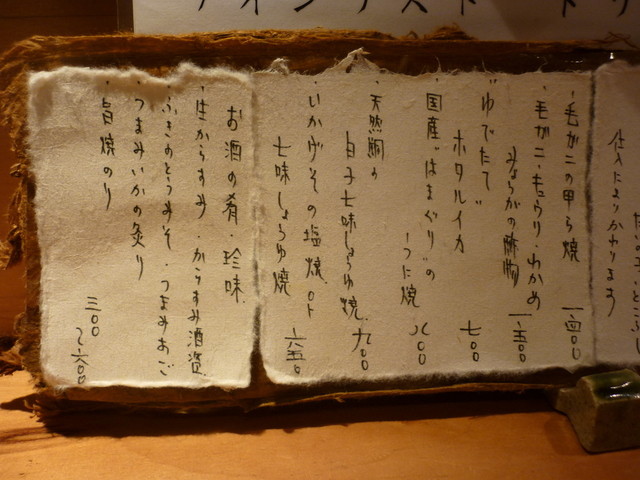 仕入によりかわります
・毛ガニの甲ら焼 一、四〇〇
・毛ガニ・もうり・わかめ
みょうがの酢物 一、五〇〇
・"ゆでたて"
ホタルイカ 七〇〇
・国産"はまぐり"の
うに焼 八〇〇
・天然鯛の
白子七味しょうゆ焼 九〇〇
・いかげその塩焼 or
七味しょうゆ焼 六五〇
お酒の肴・珍味
・生からすみ・からすみ酒漬
・ふきのとうみそ・つまみあご
・つまみいかの炙り
・旨焼のり
三〇〇
〜六〇〇